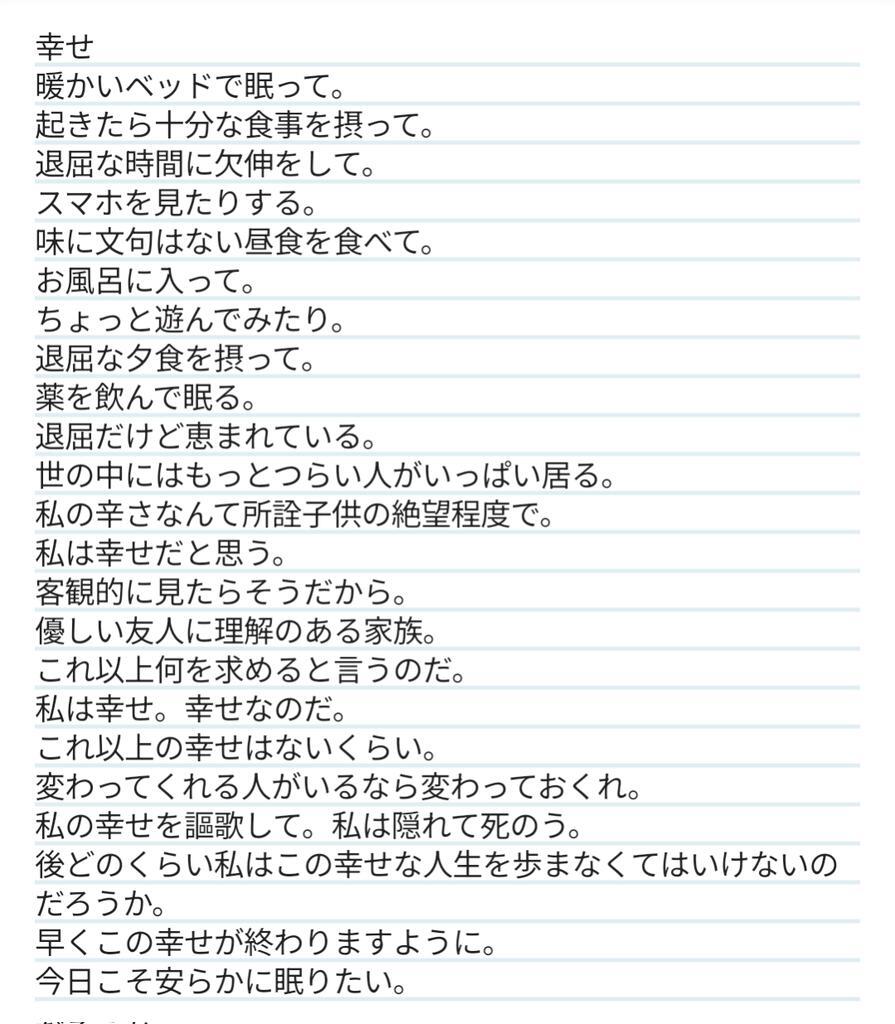 幸せ
暖かいベッドで眠って。
起きたら十分な食事を摂って。
退屈な時間に欠伸をして。
スマホを見たりする。
味に文句はない昼食を食べて。
お風呂に入って。
ちょっと遊んでみたり。
退屈な夕食を摂って。
薬を飲んで眠る。
退屈だけど恵まれている。
世の中にはもっとつらい人がいっぱい居る。
私の辛さなんて所詮子供の絶望程度で。
私は幸せだと思う。
客観的に見たらそうだから。
優しい友人に理解のある家族。
これ以上何を求めると言うのだ。
私は幸せ。幸せなのだ。
これ以上の幸せはないくらい。
変わってくれる人がいるなら変わっておくれ。
私の幸せを謳歌して。私は隠れて死のう。
後どのくらい私はこの幸せな人生を歩まなくてはいけないの
だろうか。
早くこの幸せが終わりますように。
今日こそ安らかに眠りたい。